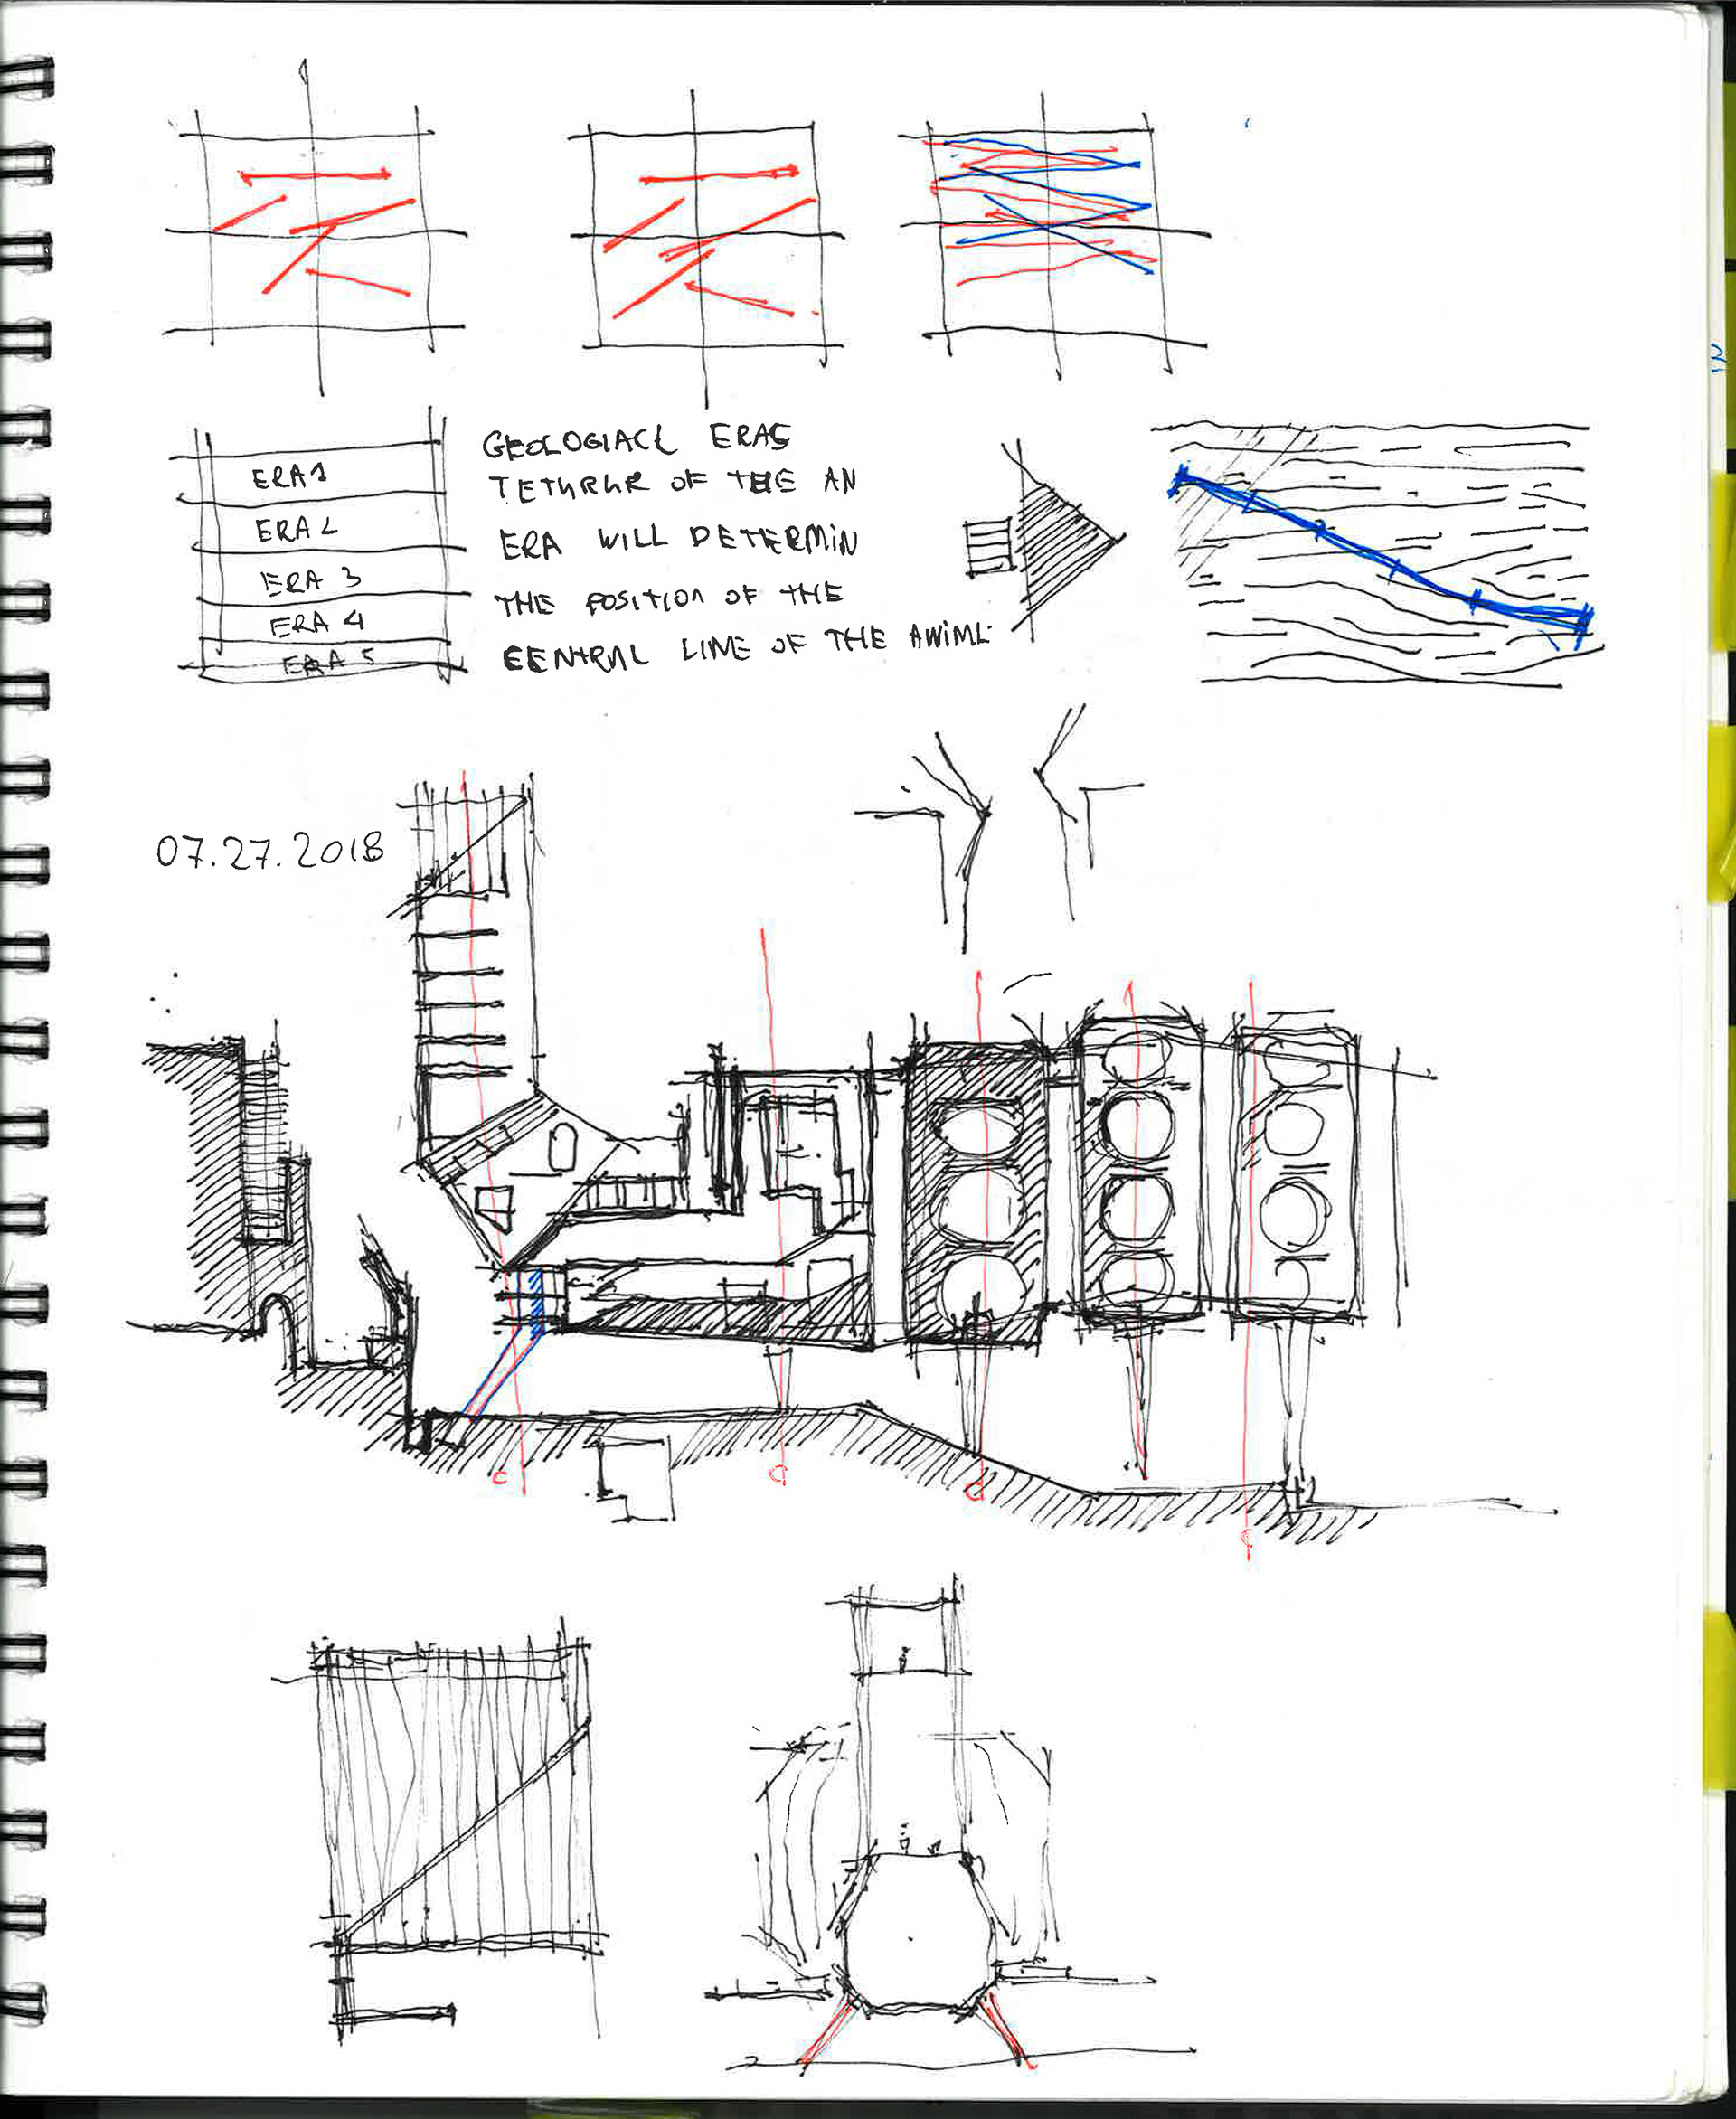 ERA 1
ERA 2
ERA 3
ERA 4
ERA 5
GEOLOGIACL ERAS
OF THE AN
ERA WILL DETERMIN
THE POSITION OF THE
CENTRAL LINE OF THE
07.27.2018